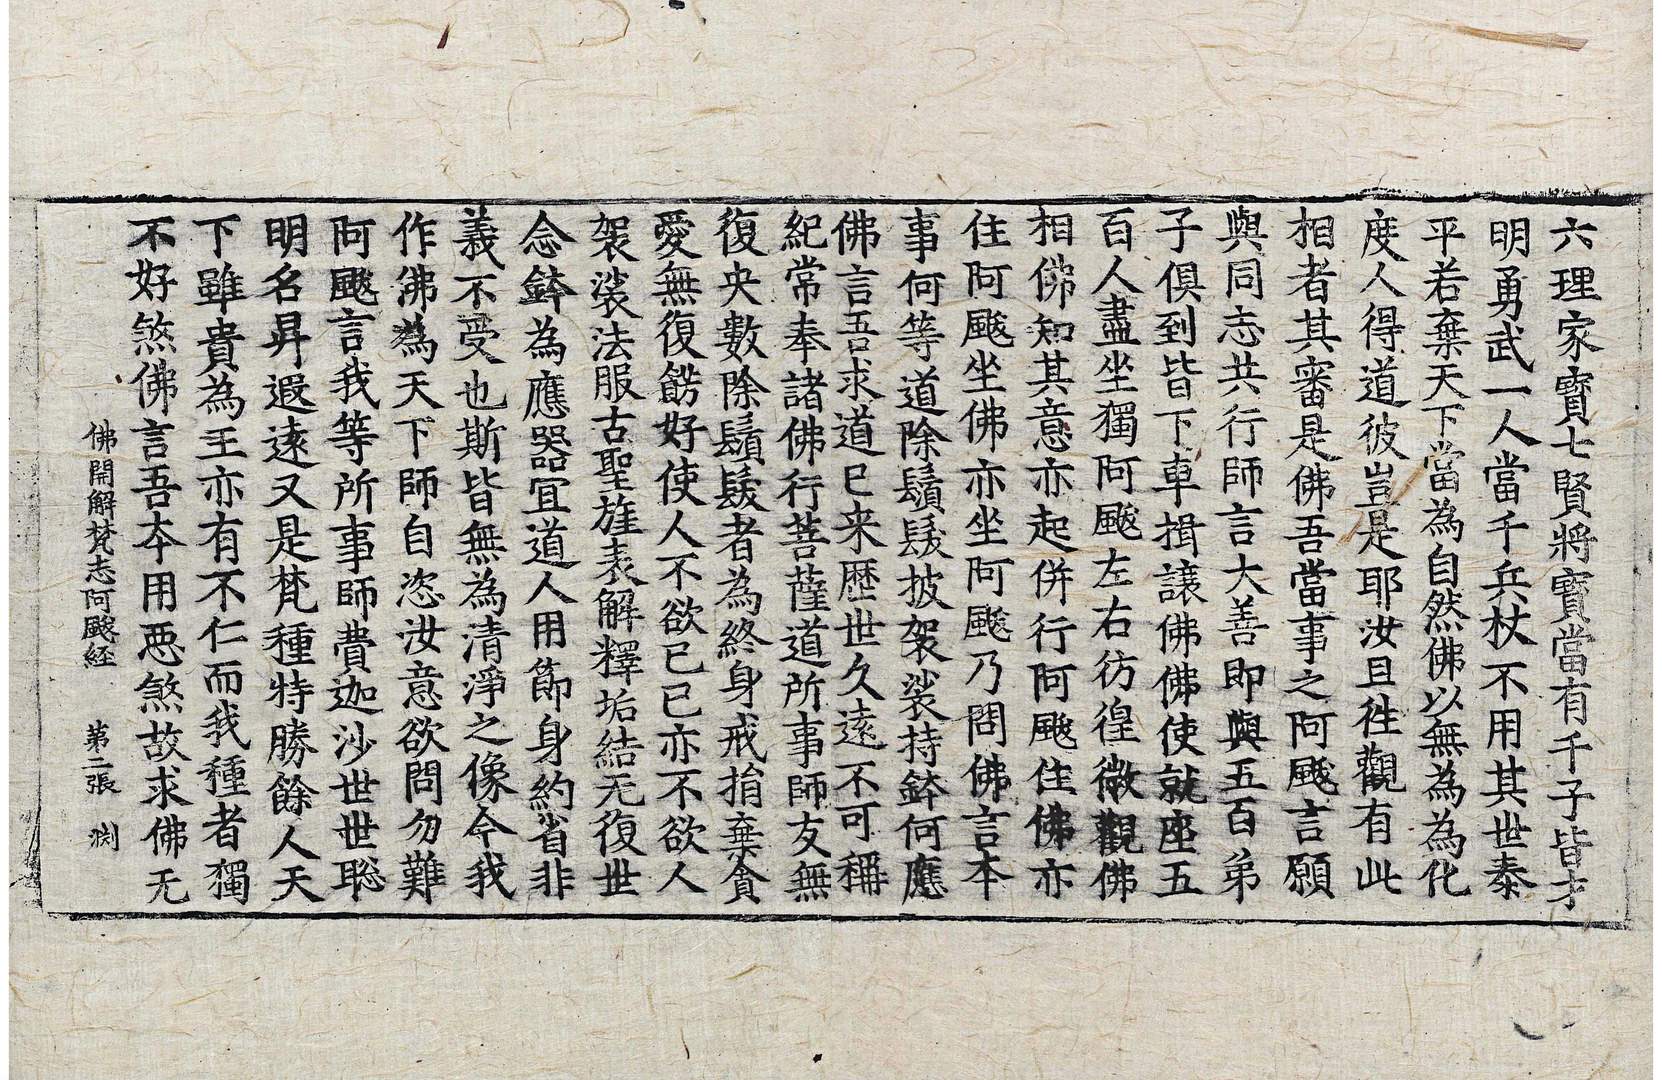 六理家寶七賢將寶當有千子皆才
明勇武一人當千兵杖不用其世泰
平若棄天下當為自然佛以無為為化
度人得道彼豈是耶汝且往觀有此
相者其審是佛吾當事之阿颰言願
與同志共行師言大善即與五百弟
子俱到皆下車揖讓佛佛使就座五
百人盡坐獨阿颰左右彷徨微觀佛
相佛知其意亦起併行阿颰住佛亦
住阿颰坐佛亦坐阿颰乃問佛言本
事何等道除鬚髮披袈裟持鉢何應
佛言吾求道已来歷世久遠不可稱
紀常奉諸佛行菩薩道所事師友無
復央數除鬚髮者為終身戒捐棄貪
愛無復餝好使人不欲已已亦不欲人
袈裟法服古聖旌表解釋垢結无復世
念鉢為應器冝道人用節身約省非
義不受也斯皆無為清淨之像今我
作佛為天下師自恣汝意欲問勿難
阿颰言我等所事師費迦沙世世聡
明名昇遐逺又是梵種特勝餘人天
下雖貴為王亦有不仁而我種者獨
不好煞佛言吾夲用惡煞故求佛无
佛開解梵志阿颰経　第二張　渕